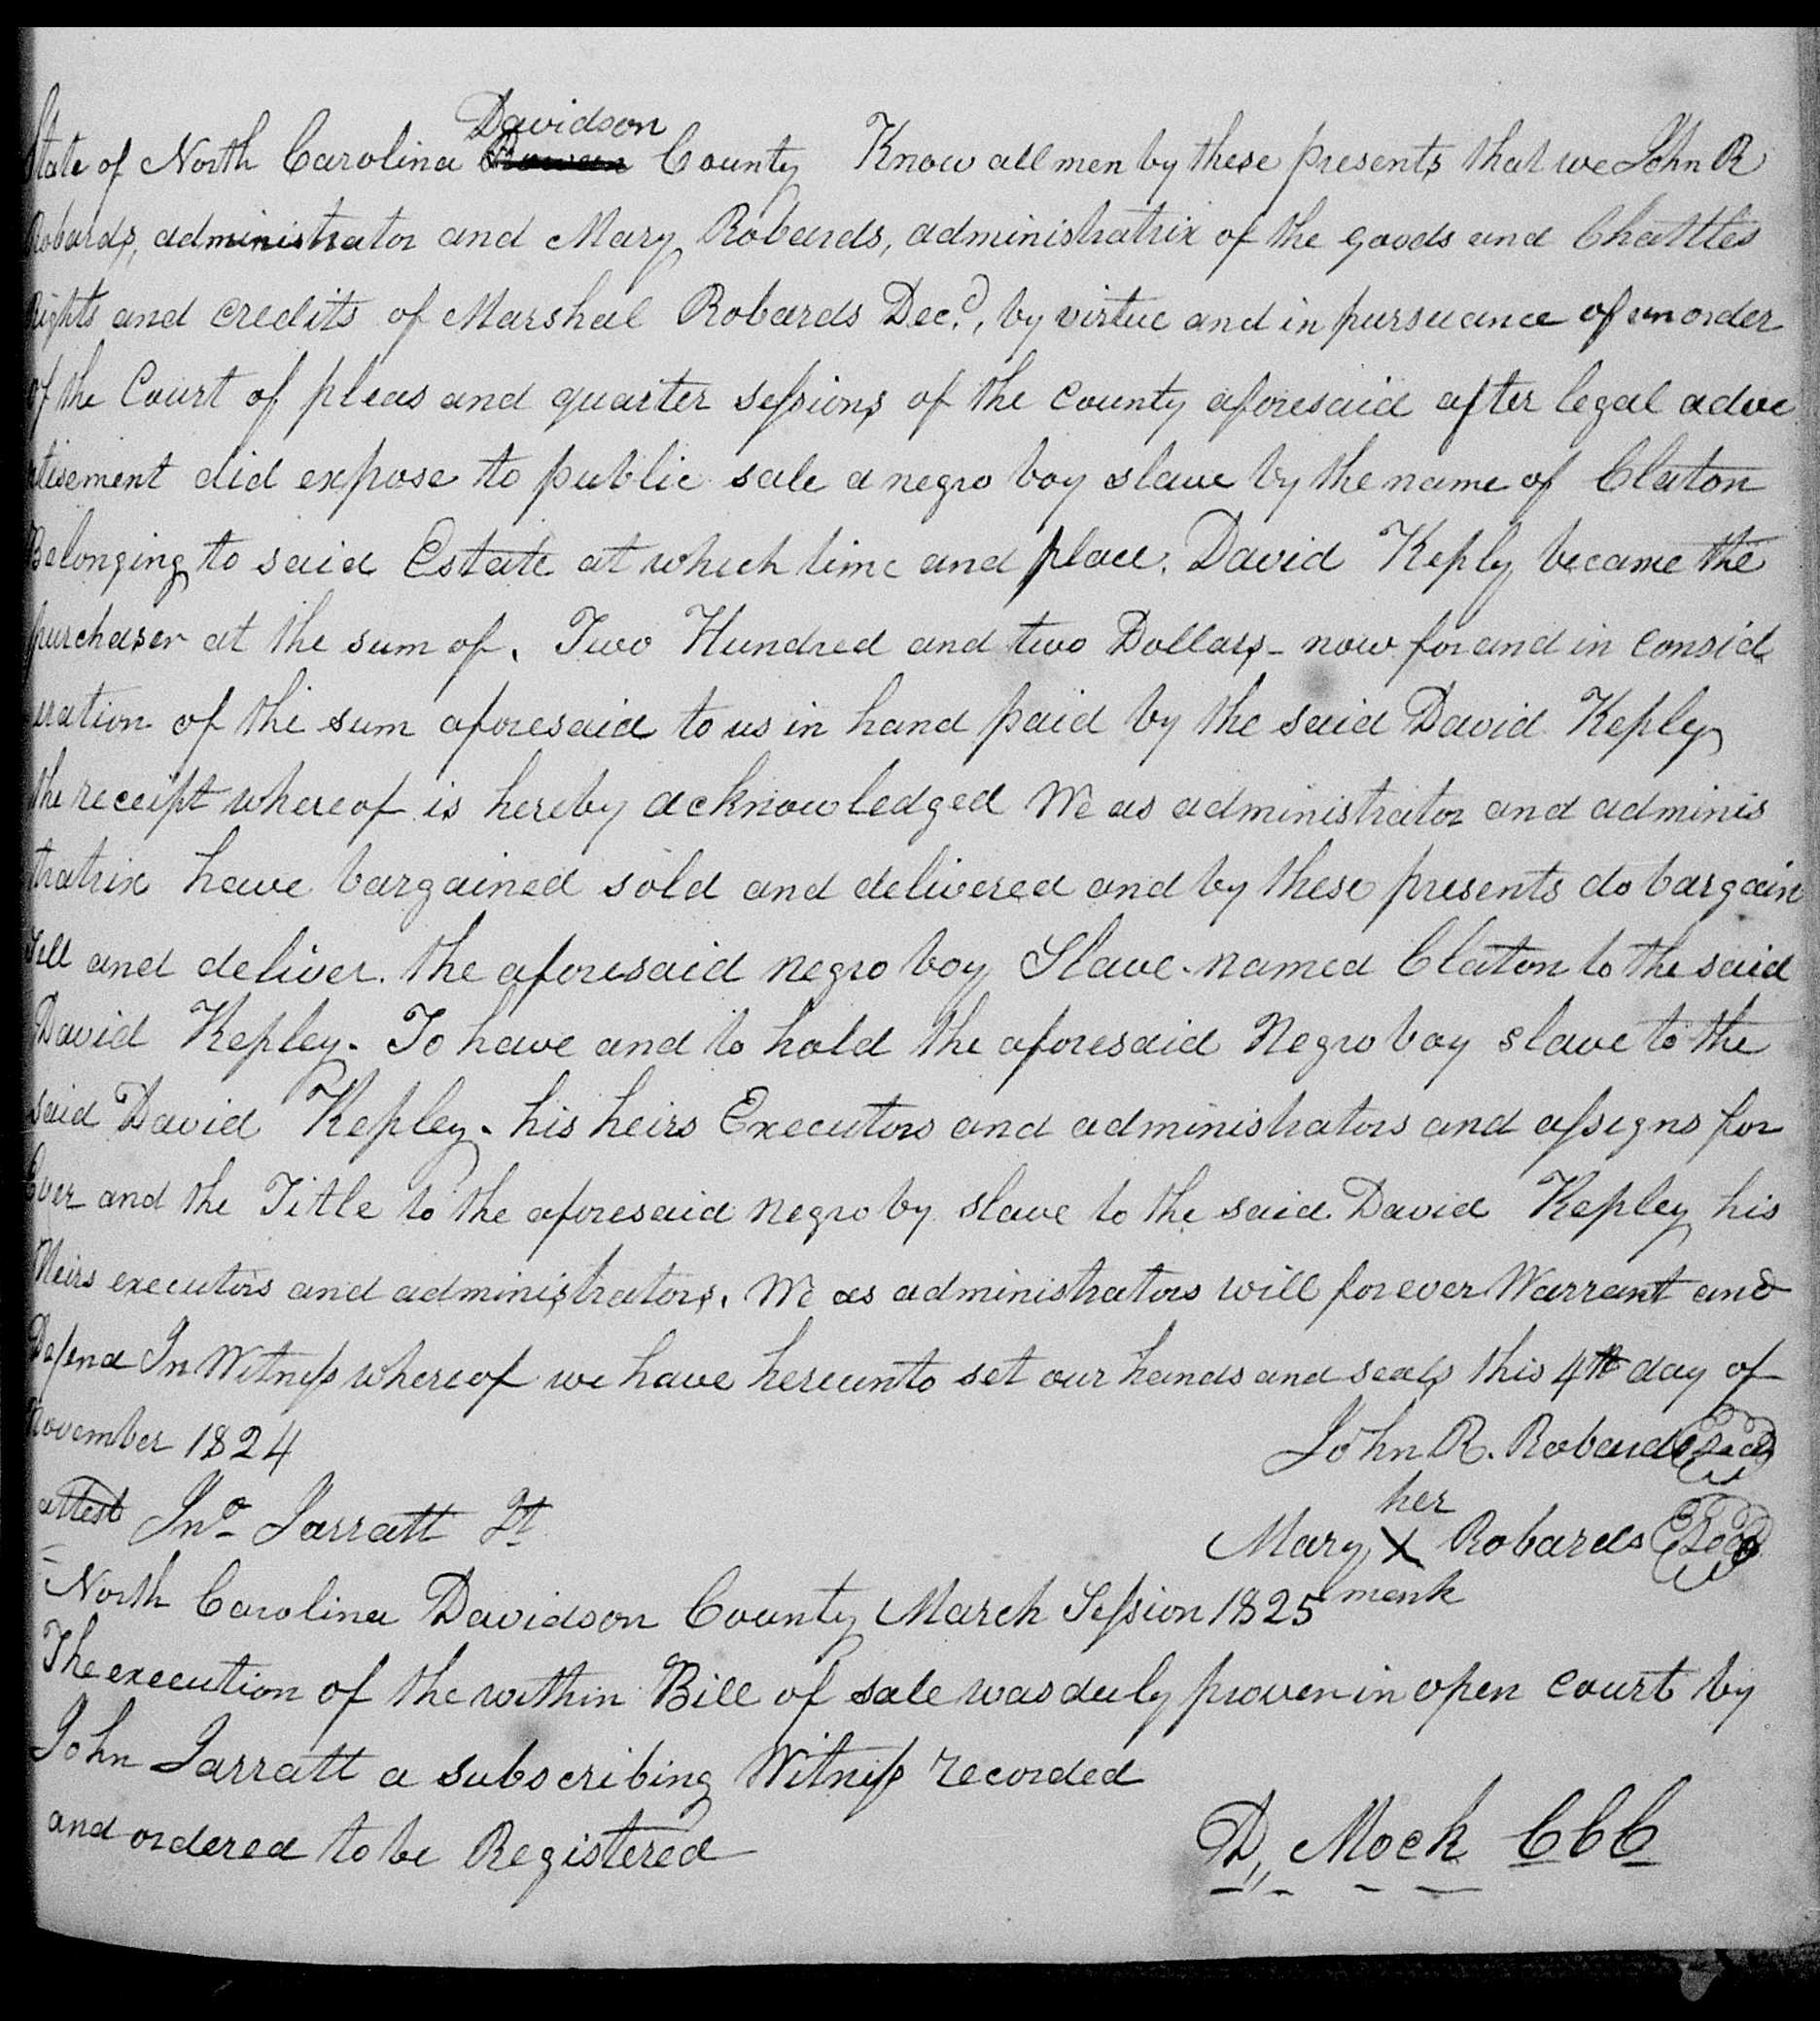 State of North Carolina Davidson County Know all men by these presents that we John R
Robards, administrator and Mary Robards, administratrix of the goods and Chattles
Rights and credits of Marshal Robards Decd., by virtue and in pursuance of an order
of the Court of pleas and quarter sessions of the county aforesaid after legal adve
rtisement did expose to public sale a negro boy slave by the name of Claton
Belonging to said Estate at which time and place. David Keply became the
purchaser at the sum of. Two Hundred and two Dollars - now for and in consid
eration of the sum aforesaid to us in hand paid by the said David Kepley
the receipt whereof is hereby acknowledged We as administrator and adminis
tratrix have bargained sold and delivered and by these presents do bargain
sell and deliver. the aforesaid negro boy Slave. named Claton to the said
David Kepley. To have and to hold the aforesaid Negro boy slave to the
said David Kepley. his heirs Executors and administrators and assigns for
Ever and the Title to the aforesaid negro by slave to the said David Kepley his
Heirs executors and administrators. We as administrators will forever Warrant and
Defend In Witness whereof we have hereunto set our hands and seals this 4th day of
November 1824 John R. Robards Seal
attest Jno Jarratt Jt her
Mary X Robards Seal
mark
North Carolina Davidson County March Session 1825
The execution of the within Bill of sale was duly proven in open court by
John Jarratt a subscribing Witness recorded
and ordered to be Registered D,, Mock CCC